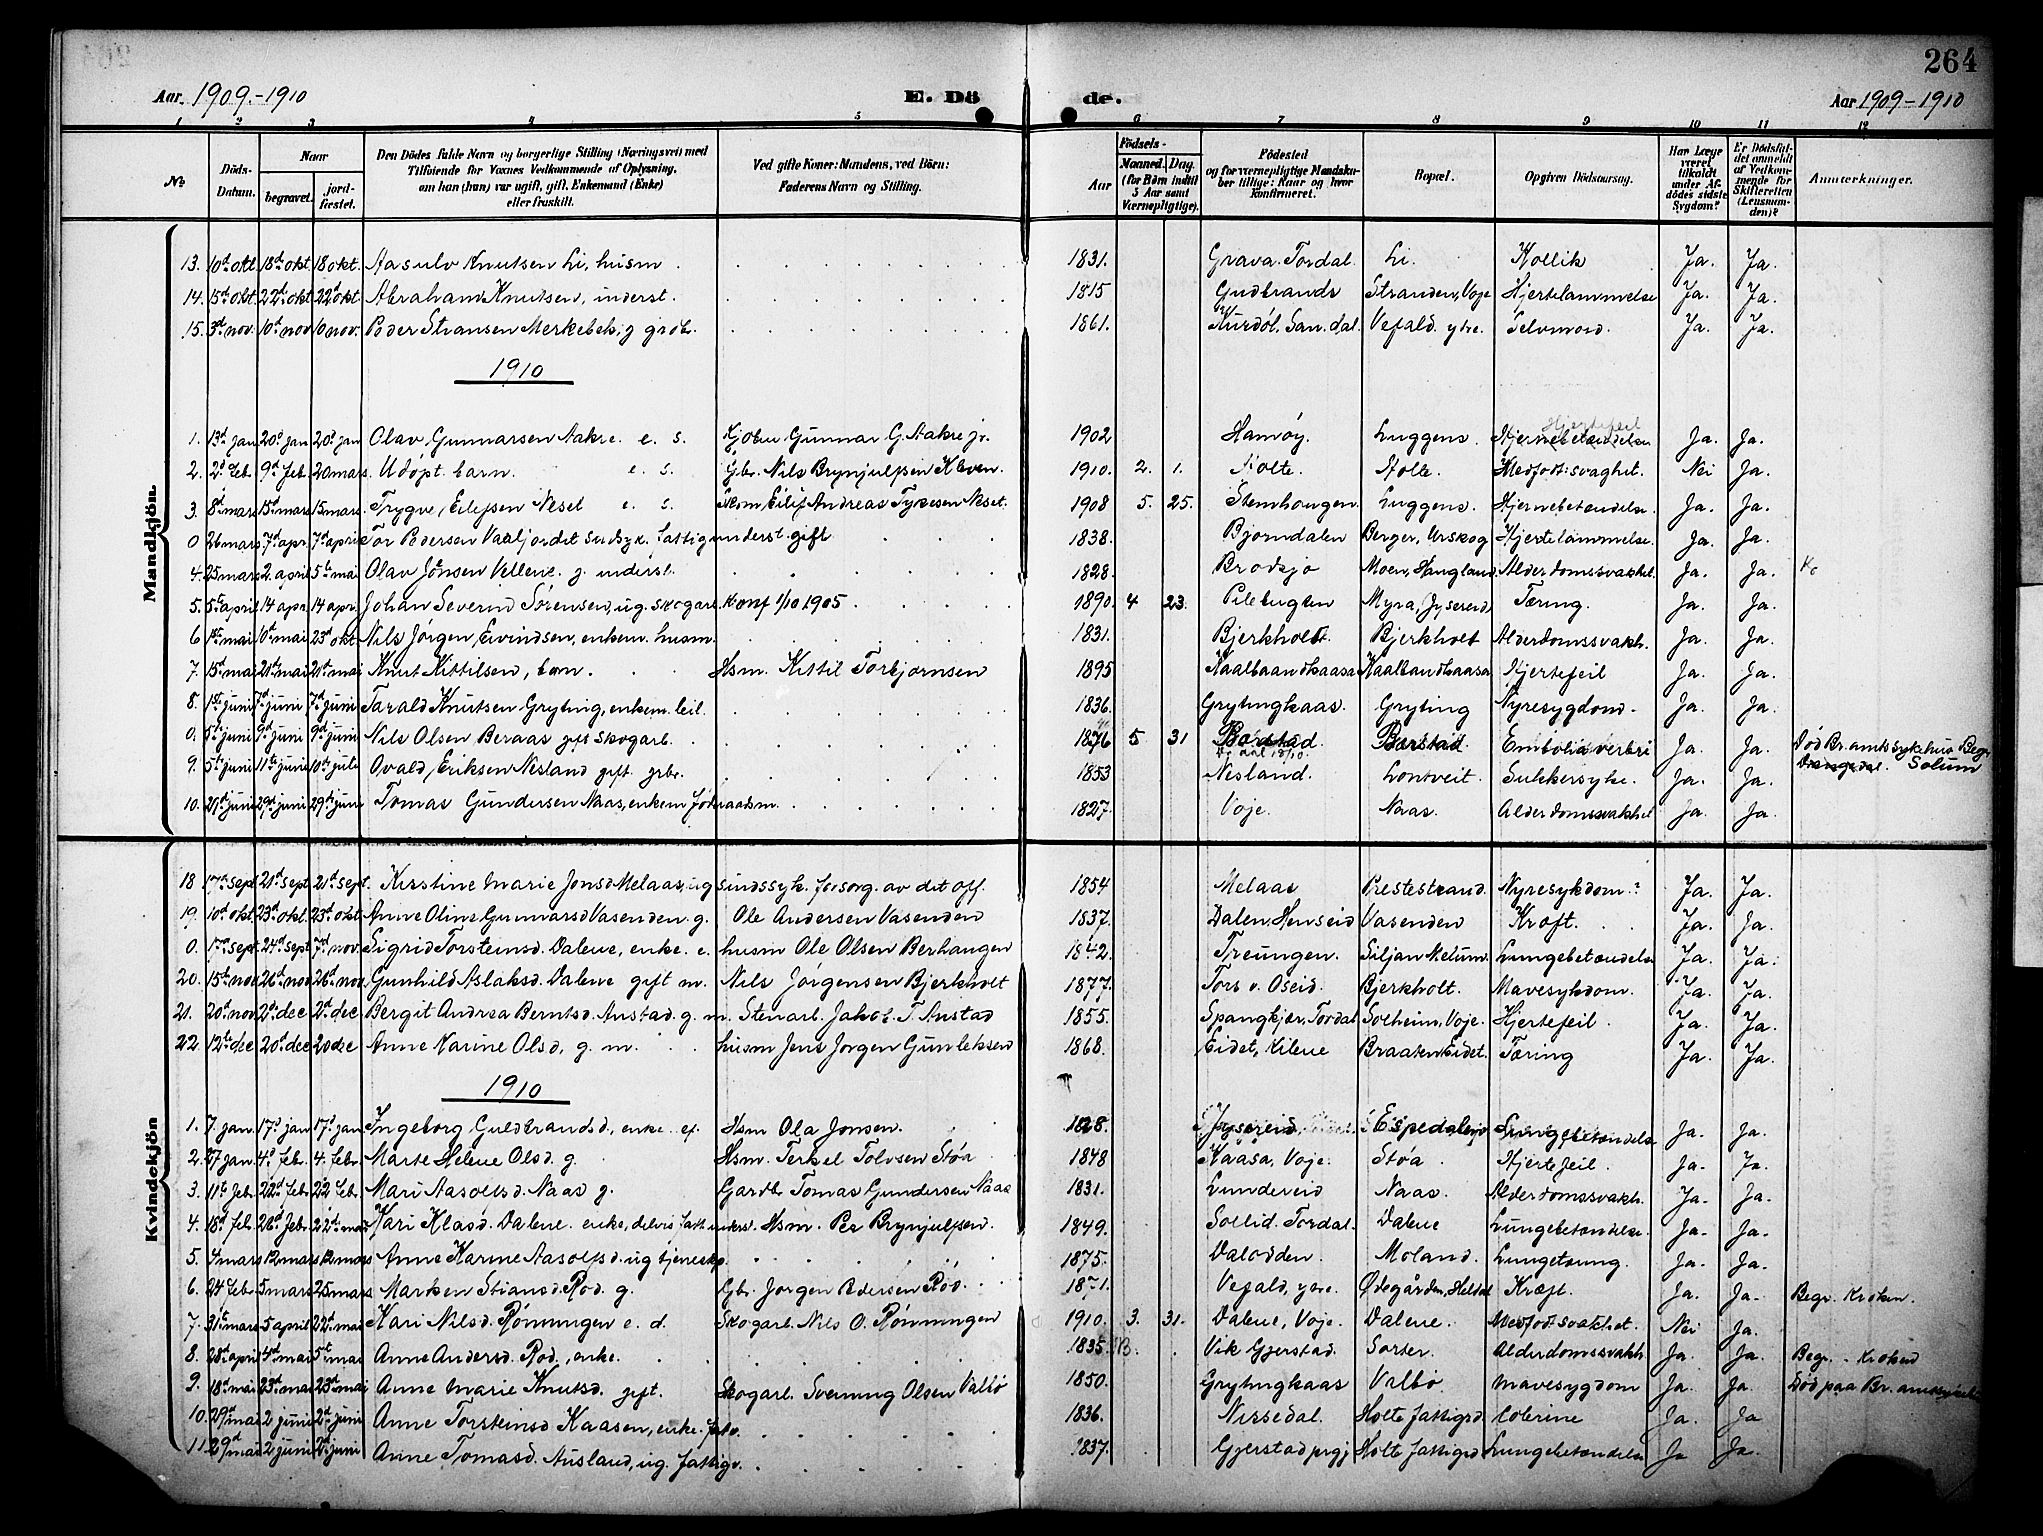 264
Aar 1909-1910 E. Dö de. Aar 1909-1910
1 2 3 4 5 6 7 8 9 10 11 12
No Döds-Datum. Naar begravet. jord-fæstet. Den Dödes fulde Navn og borgerlige Stilling (Næringsvei) med Tilföiende for Voxnes Vedkommende af Oplysning, om han (hun) var ugift, gift, Enkemand (Enke) eller fraskilt. Ved gifte Koner: Mandens, ved Börn: Faderens Navn og Stilling. Aar Födsels- Maaned. Dag. (for Børn indtil 5 Aar samt Værnepligtige). Födested og for værnepligtige Mandskaber tillige: Naar og hvor konfirmeret. Bopæl. Opgiven Dödsaarsag. Har Læge været tilkaldt under Afdödes sidste Sygdom? Er Dödsfaldet anmeldt af Vedkommende for Skifteretten (Lensmanden)? Anmærkninger.
Mandkjön.
13. 10d okt. 18d okt 18 okt. Aasulv Knutsen Li, husm. 1831. Grava. Tordal. Li. Kollik Ja. Ja.
14. 15d okt. 22d okt 22d okt Abraham Knutsen, inderst. 1815 Gudbrands Stranden, Voje Hjertelammelse Ja. Ja.
15. 3d nov. 10d nov 10 nov. Peder Stransen Merkebek, g. grbr. 1861. San.dal Vefald. ytre. Selvmord. Ja. Ja.
1910
1. 13d jan 20d jan 20d jan Olav Gunnarsen Aakre. e. s. Kjøbm Gunnar G. Aakre jr. 1902 Hamøy. Luggens. Hjernebetændelse Hjertefeil Ja. Ja.
2. 2d feb. 9d feb. 20 mars. Udøpt barn. e. s. Gbr. Nils Brynjulfsen Kleven. 1910. 2. 1. Holte. Holte. Medfødt svaghet. Nei Ja.
3. 8d mars 15d mars 15 mars. Trygve, Eilefsen Neset e. s. Skom Eilif Andreas Tykesen Neset. 1908 5. 25. Stenhougen Luggens. Hjernebetændelse. Ja. Ja.
0 26 mars 7d apr. 7d april Tor Pedersen Vaaljordet sindsyk. fattig underst. gift 1838. Bjørndalen Berger, Urskog Hjertelammelse. Ja. Ja.
4. 25 mars 2. april 5te mai Olav Jønsen Vellene. g. inderst. 1828. Brødsjø Moen, Hangland. Alderdomssvakhet. Ja. Ja.
5. 5te april 14 apr. 14 apr. Johan Severin Sørensen, ug. skogarb. Konf 1/10 1905 1890. 4 23. Pilebugten Myra, Jysereid Tæring. Ja. Ja.
6 1ste mai 10d mai 23d okt. Nils Jörgen, Eivindsen, enkem. husm. 1831. Bjerkholt. Bjerkholt Alderdomssvakh. Ja. Ja.
7. 15d mai 21d mai 21d mai Knut Kittilsen, barn. Hsm. Kittil Torbjørnsen 1895 Kaalbaandkaasa Kaalbandkaasa Hjertefeil Ja. Ja.
8. 1ste juni 7d juni 7d juni Tarald Knutsen Gryting, enkem. leil. 1836. Grytingkaas. Gryting Nyresygdom. Ja. Ja.
0. 5te juni 9d juni 9d juni Nils Olsen Beraas gift skogarb. 1876 5 31 Barstad. Barstad. Embolia verbri Ja. Ja. Død Br. amts sykehus Begr. Solum
9. 5te juni 11te juni 10te juli Ovald, Eriksen Nesland gift. grbr. 1853 Nesland. Lontveit. Sukkersyke. Ja. Ja.
10. 21d juni 29d juni 29d juni Tomas Gundersen Naas, enkem. föderaadsm. 1827. Voje. Naas. Alderdomssvakhet Ja. Ja.
Kvindekjön
18 17d sept 21d sept 21d sept. Kirstine Marie Jonsd Melaas, ug sindssyk. forsorg. av det off. 1854 Melaas Prestestrand. Nyresykdom.? Ja. Ja.
19. 10d okt 23d okt. 23d okt Anne Oline Gunnarsd Vasenden g. Ole Andersen Vasenden 1837. Dalen, Henseid Vasenden Kræft. Ja. Ja.
0. 17d sept. 24d sept 7d nov. Sigrid Torsteinsd. Dalene, enke. e. husm Ole Olsen Berhaugen 1842. Treungen. Siljan Melum. Lungebetændelse Ja. Ja.
20. 15de nov 26d nov 26d nov. Gunhild Aslaksd. Dalene gift m. Nils Jørgensen Bjerkholt 1877. Tors v. Oseid. Bjerkholt. Mavesykdom. Ja. Ja.
21. 20d nov. 2d dec 2d dec Bergit Andrea Berntsd. Anstad. g. m. Stenarb. Jakob T. Anstad 1855. Spangkjær, Tordal Solheim, Voje. Hjertefeil. Ja. Ja.
22 12te dec 20d dec 20 dec Anne Karine Olsd, g. m. husm Jens Jørgen Gunleksen 1868. Eidet, Kilene Braaten Eidet. Tæring Ja. Ja.
1910
1. 7. jan. 17d jan 17d jan Ingeborg Guldbrandsd, enke. ef. Hsm Ola Jonsen. 1828. Jysereid, Espedalen Lungebetændelse Ja. Ja.
2. 27 jan. 4d feb. 4. feb. Marte Helene Olsd. g. Hsm. Terkel Tolvsen Støa 1848 Kaasa, Voje. Støa. Hjertefeil. Ja. Ja.
3. 11te feb. 22d feb 22 feb. Mari Aasolfsd. Naas g. Gardbr Tomas Gundersen Naas 1831. Lundereid Naas. Alderdomssvakh. Ja. Ja.
4. 18d feb. 26d febr. 22d mai Kari Klasd. Dalene. enke, delvis fatt. underst. Hsm. Per Brynjulfsen. 1849. Sollid. Tordal. Dalene Lungebetændelse. Ja. Ja.
5. 4 mars 12 mars 12 mars Anne Karine Aasolfsd. ug tjenestep. 1875. Dalodden. Moland. Lungetæring. Ja. Ja.
6. 24 feb. 5 mars 25 mars Marken Stiansd. Rød. g. Gbr. Jorgen Pedersen Rød. 1871. Vefald, ytre. Ødegården, Helsdal Kræft. Ja. Ja. Begr. Kroken.
7. 31te mars 5 april 22d mai Kari Nilsd. Rønningen e. d. Skogarb. Nils O. Rønningen 1910. 3. 31. Dalene, Voje. Dalene. Medfødt svakhet. Nei Ja.
8. 28d april 4d mai 5te mai Anne Andersd. Rød., enke. 1835. Vik Gjerstad. Sorter. Alderdomssvakh Ja. Ja. Begr. Kroken
9. 18d mai 23d mai 23d mai Anne Marie Knutsd. gift. Skogarb. Svenning Olsen Valbö 1850. Grytingkaas Valbö. Mavesygdom Ja. Ja. Død paa Br. amtssykehus
10. 29d mai 2 juni 2d juni Anne Torsteinsd Kaasen, enke. fatv. 1836. Nissedal. Holte fattiggrd Colerine Ja. Ja
11. 29d mai 2 juni 2d juni Anne Tomasd. Ausland, ug. fattigv. 1837. Gjerstad prgj Holte fattiggrd Lungebetændelse Ja Ja.